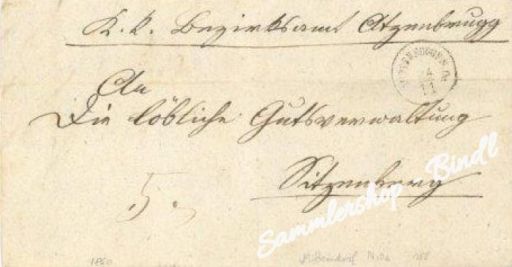 K. k. Bezirksamt Atzenbrugg
4
11
An
Die löbliche Gutsverwaltung
Sitzenberg
5.
Sammlershop Bindl
1860